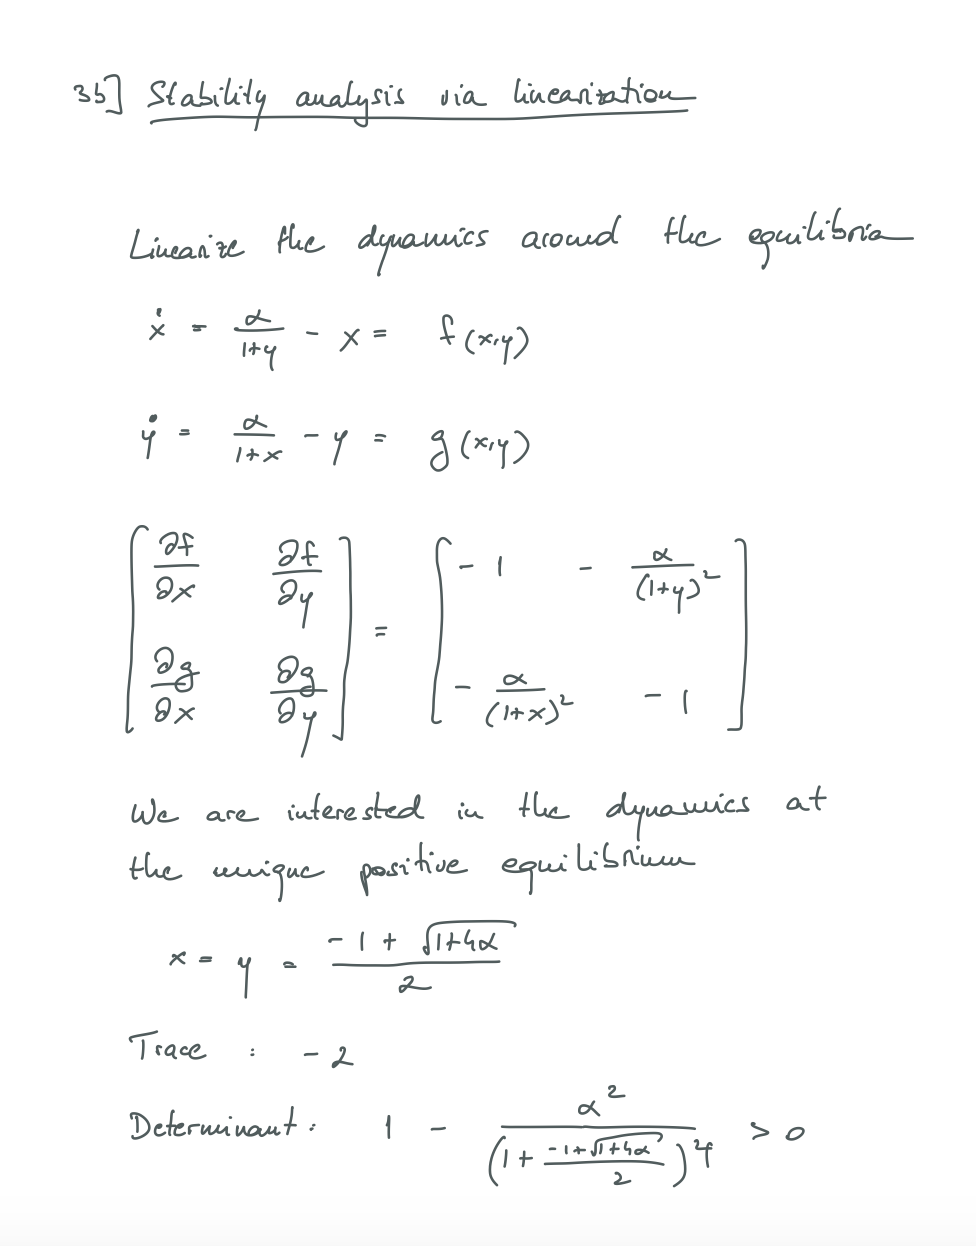 3b] Stability analysis via linearization
Linearize the dynamics around the equilibria
ẋ = α/(1+y) - x = f(x,y)
ẏ = α/(1+x) - y = g(x,y)
[∂f/∂x ∂f/∂y; ∂g/∂x ∂g/∂y] = [-1 -α/(1+y)²; -α/(1+x)² -1]
We are interested in the dynamics at
the unique positive equilibrium
x = y = (-1 + √(1+4α))/2
Trace : -2
Determinant : 1 - α²/(1 + (-1+√(1+4α))/2)⁴ > 0